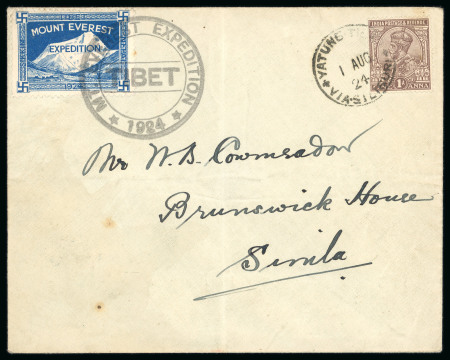 MOUNT EVEREST
EXPEDITION
1924
MT EVEREST EXPEDITION
TIBET
1924
YATUNG
1 AUG
24
VIA SILIGURI
INDIA POSTAGE & REVENUE
1A
ANNA
Mr W. B. Cowmeadow
Brunswick House
Simla